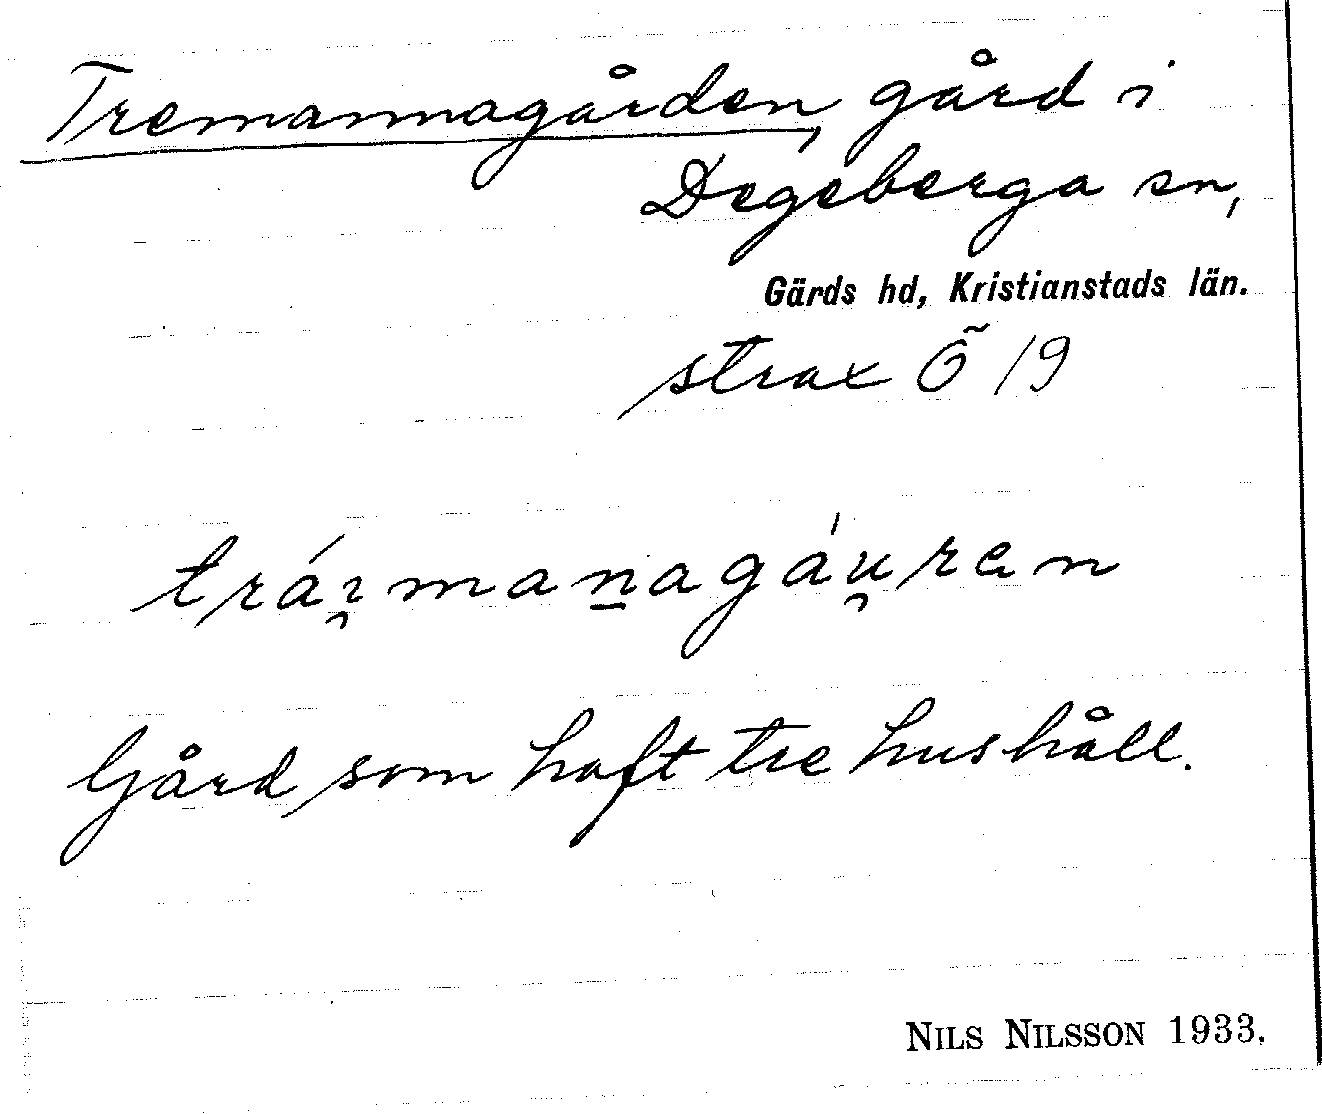 Tremannagården, gård i
Degeberga sn,
Gärds hd, Kristianstads län.
strax Ö 19
trá𝑟̯mana̱gáu̯ren
Gård som haft tre hushåll.
NILS NILSSON 1933.